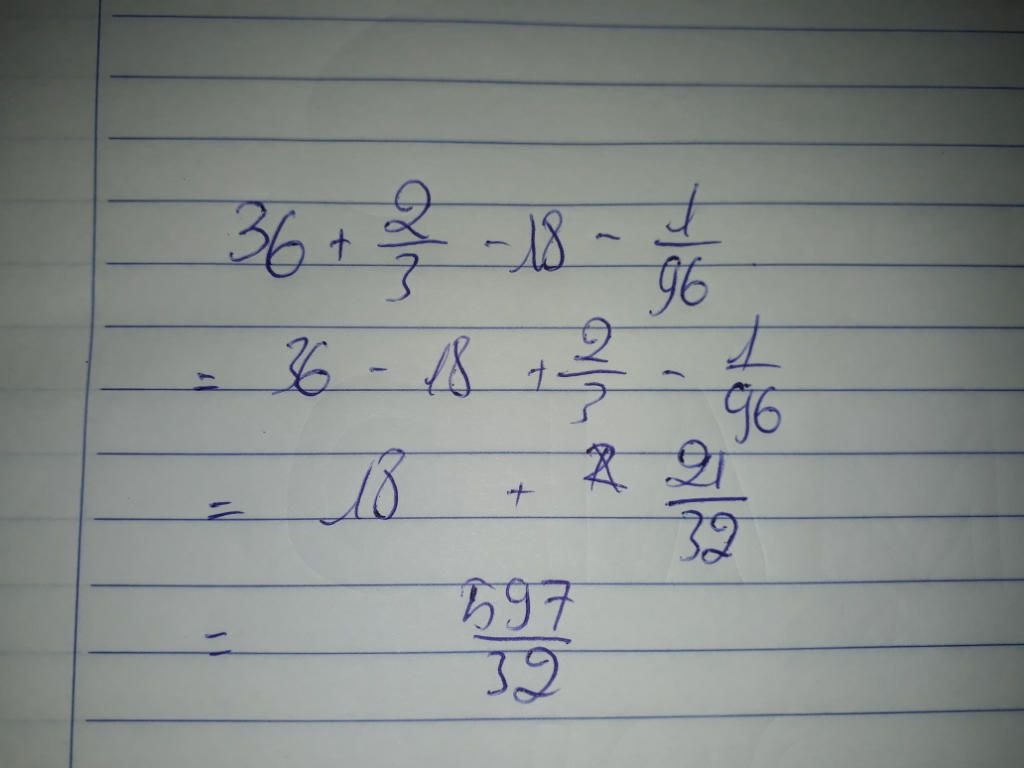 36 + 2/3 - 18 - 1/96
= 36 - 18 + 2/3 - 1/96
= 18 + 21/32
= 597/32